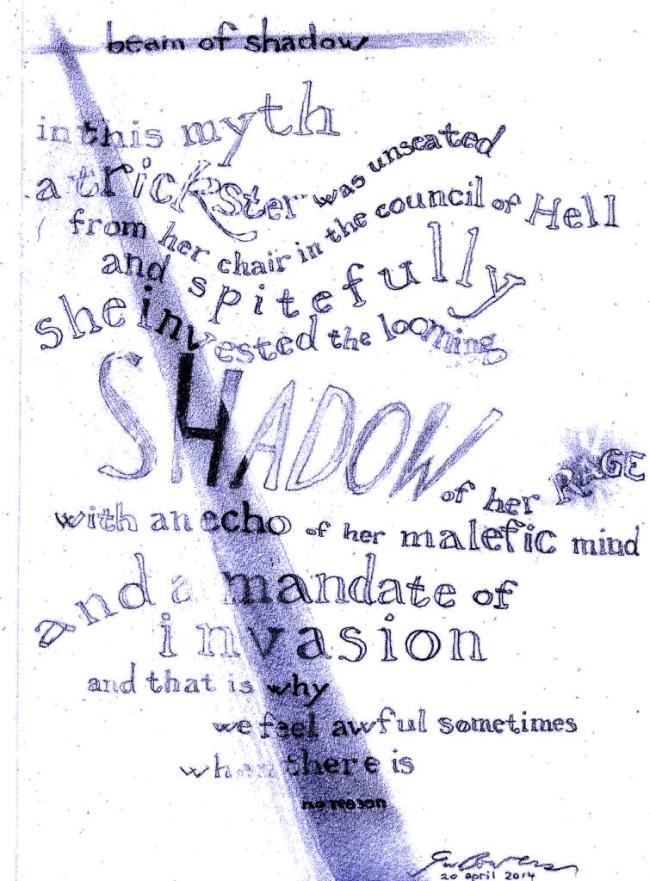 beam of shadow
in this myth
a trickster was unseated
from her chair in the council of Hell
and spitefully
she invested the looming
SHADOW of her RAGE
with an echo of her malefic mind
and a mandate of
invasion
and that is why
we feel awful sometimes
when there is
no reason
20 april 2014